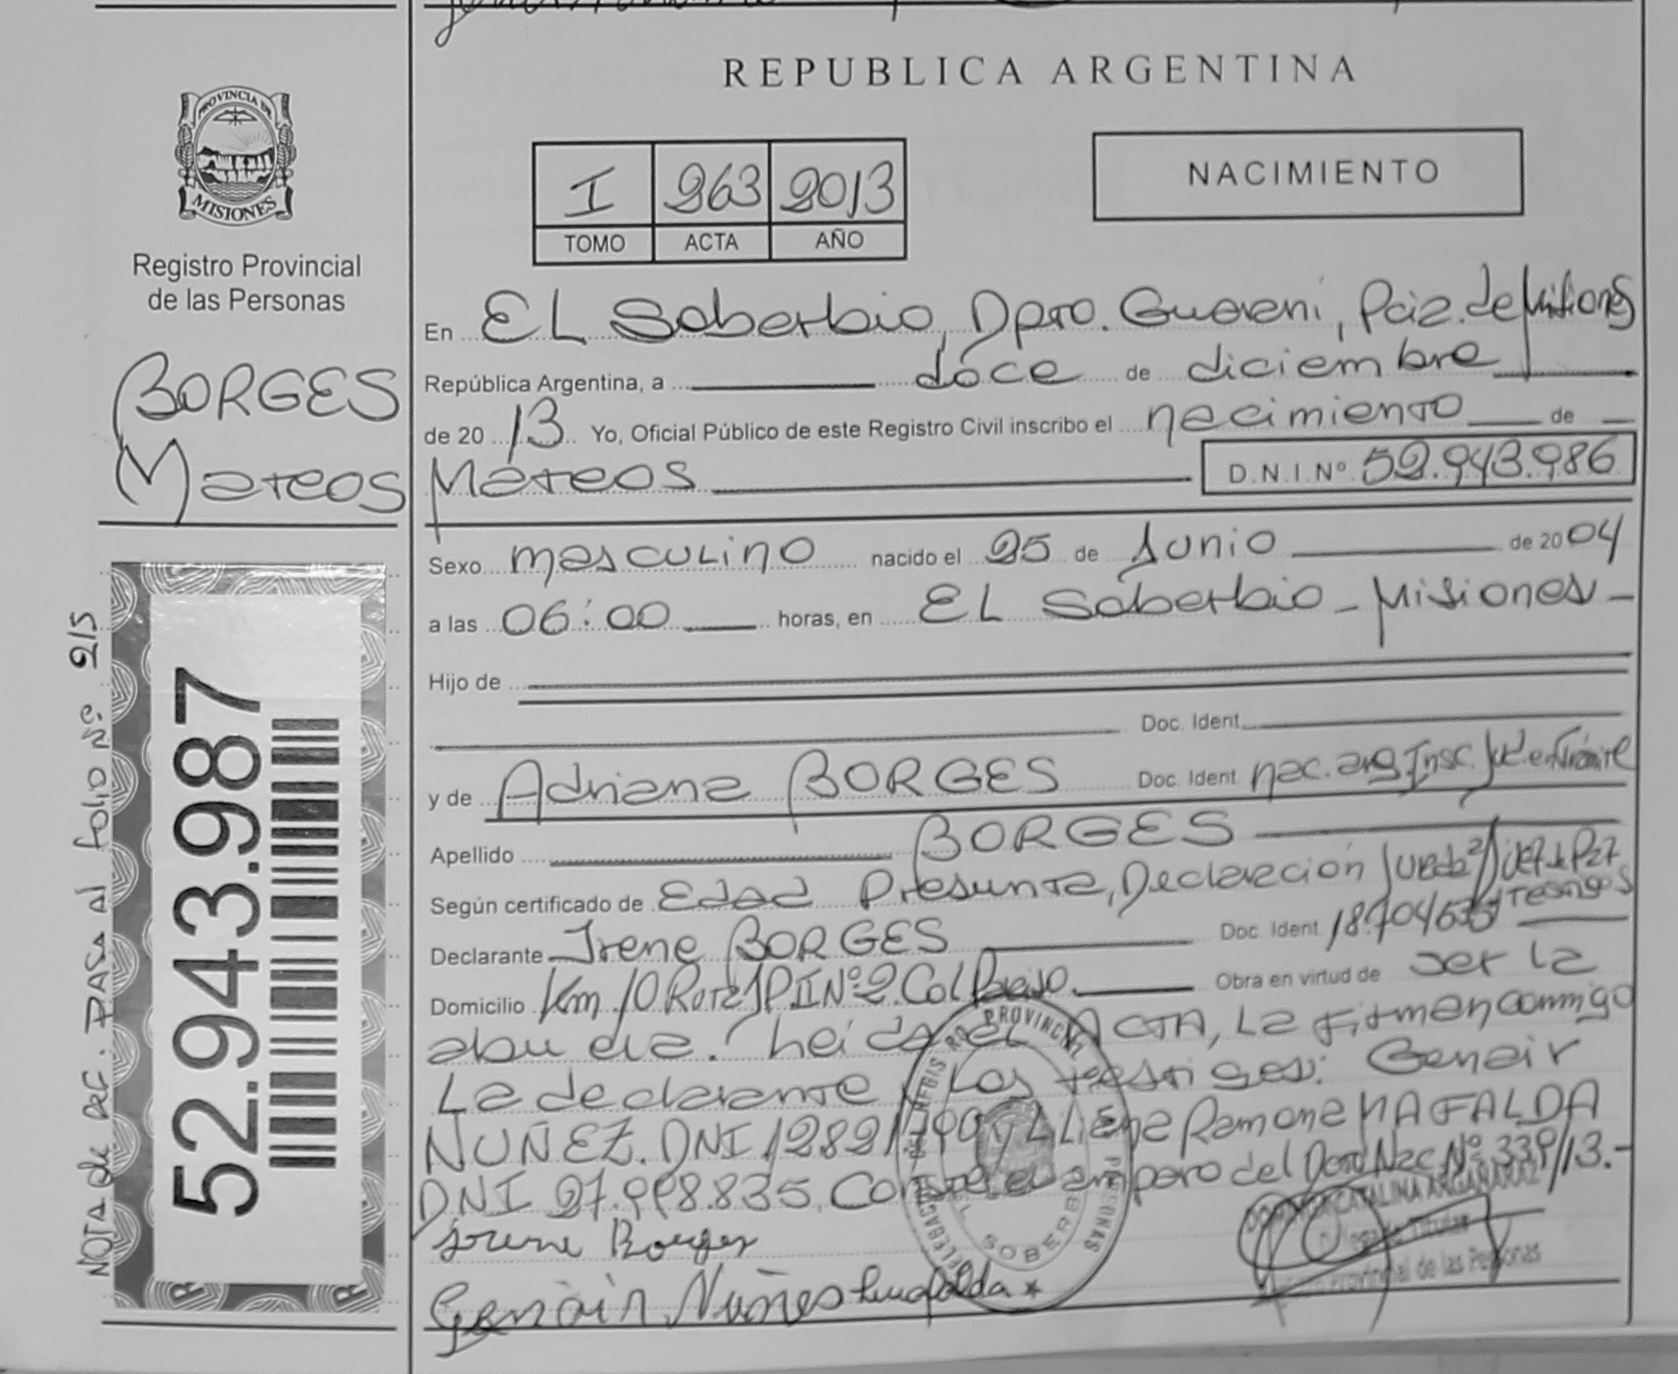 REPUBLICA ARGENTINA
PROVINCIA DE
MISIONES
Registro Provincial
de las Personas
BORGES
Mateos
NOTA de REF. PASA AL folio Nº 215
52.943.987
I 263 2013
TOMO ACTA AÑO
NACIMIENTO
En EL Soberbio, Dpto. Guarani, Pcia. de Misiones
República Argentina, a doce de diciembre
de 20 13 Yo, Oficial Público de este Registro Civil inscribo el nacimiento de
Mateos D.N.I.Nº 52.943.986
Sexo masculino nacido el 25 de Junio de 2004
a las 06:00 horas, en EL Soberbio - Misiones -
Hijo de
Doc. Ident.
y de Adriana BORGES Doc. Ident. nac. arg. Insc. Jud. en Trámite
Apellido BORGES
Según certificado de Edad Presunta, Declaración Jurada Juez de Paz
Testigos
Declarante Irene BORGES Doc. Ident.
Domicilio Km 10 Ruta P Nº 2. Col Paraiso. Obra en virtud de ser la
abuela. Leida el ACTA, La firman conmigo
La declarante y Los testigos: Genair
NUÑEZ. DNI Ramona MAFALDA
DNI 27.998.835. Consta el amparo del Nac Nº 339/13.-
Irene Borges
Genair Nuñes mafalda *
DELEGACION DEL REGISTRO PROVINCIAL PERSONAS
EL SOBERBIO
CATALINA
Delegada Titular
Registro Provincial de las Personas